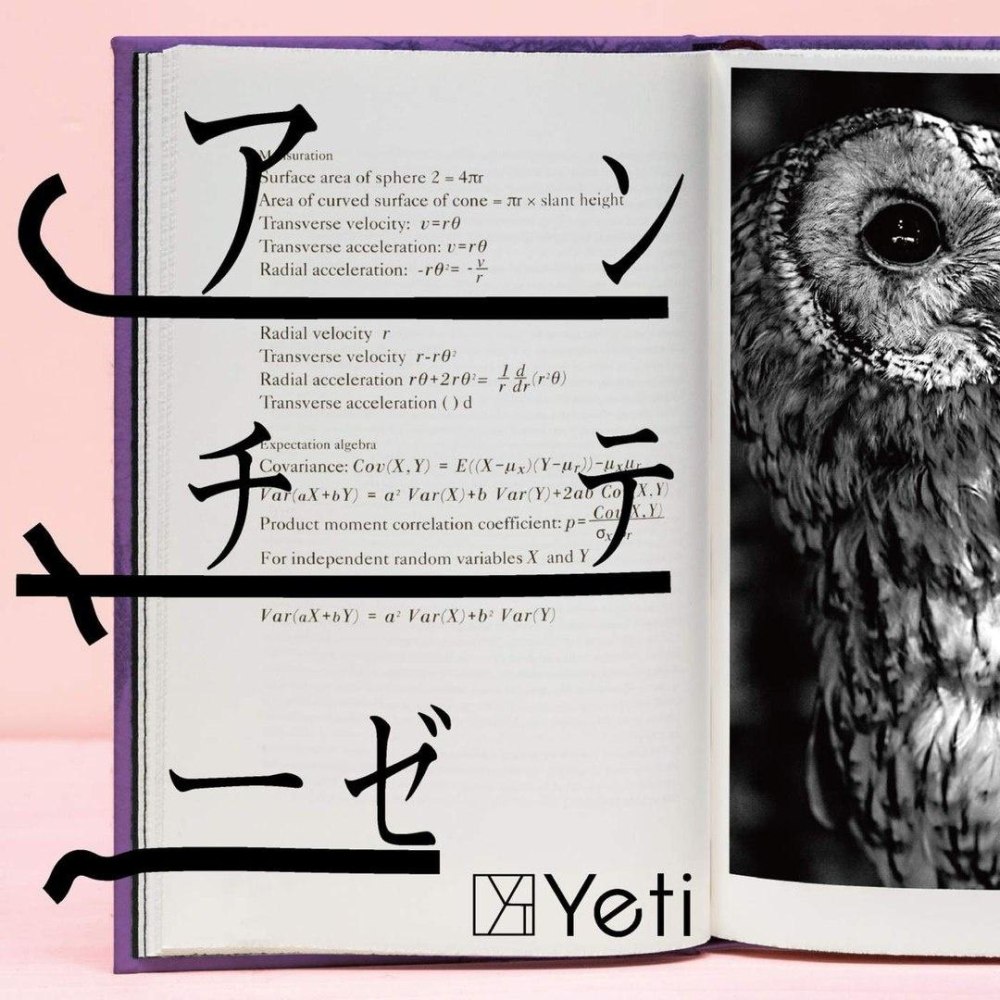 アン
Mensuration
Surface area of sphere 2 = 4πr
Area of curved surface of cone = πr × slant height
Transverse velocity: v=rθ
Transverse acceleration: v=rθ
Radial acceleration: -rθ²= -v/r
Radial velocity r
Transverse velocity r-rθ²
Radial acceleration rθ+2rθ²= 1/r d/dr(r²θ)
Transverse acceleration ( ) d
チテ
Expectation algebra
Covariance: Cov(X,Y) = E((X-μx)(Y-μr))-μxμr
Var(aX+bY) = a² Var(X)+b Var(Y)+2ab Cov(X,Y)
Product moment correlation coefficient: p= Cov(X,Y)/σxσr
For independent random variables X and Y
Var(aX+bY) = a² Var(X)+b² Var(Y)
ーゼ
Yeti